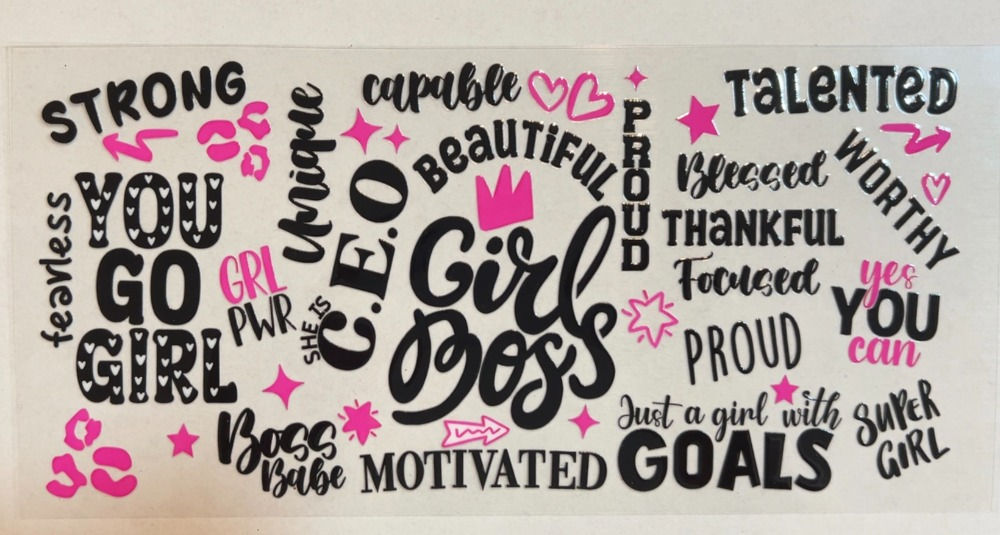 STRONG
fearless
YOU
GO
GIRL
GRL
PWR
Unique
SHE IS
C.E.O
capable
BEAUTIFUL
Girl
Boss
Boss
Babe
MOTIVATED
PROUD
TALENTED
Blessed
THANKFUL
Focused
PROUD
WORTHY
yes
YOU
can
Just a girl with
GOALS
SUPER
GIRL